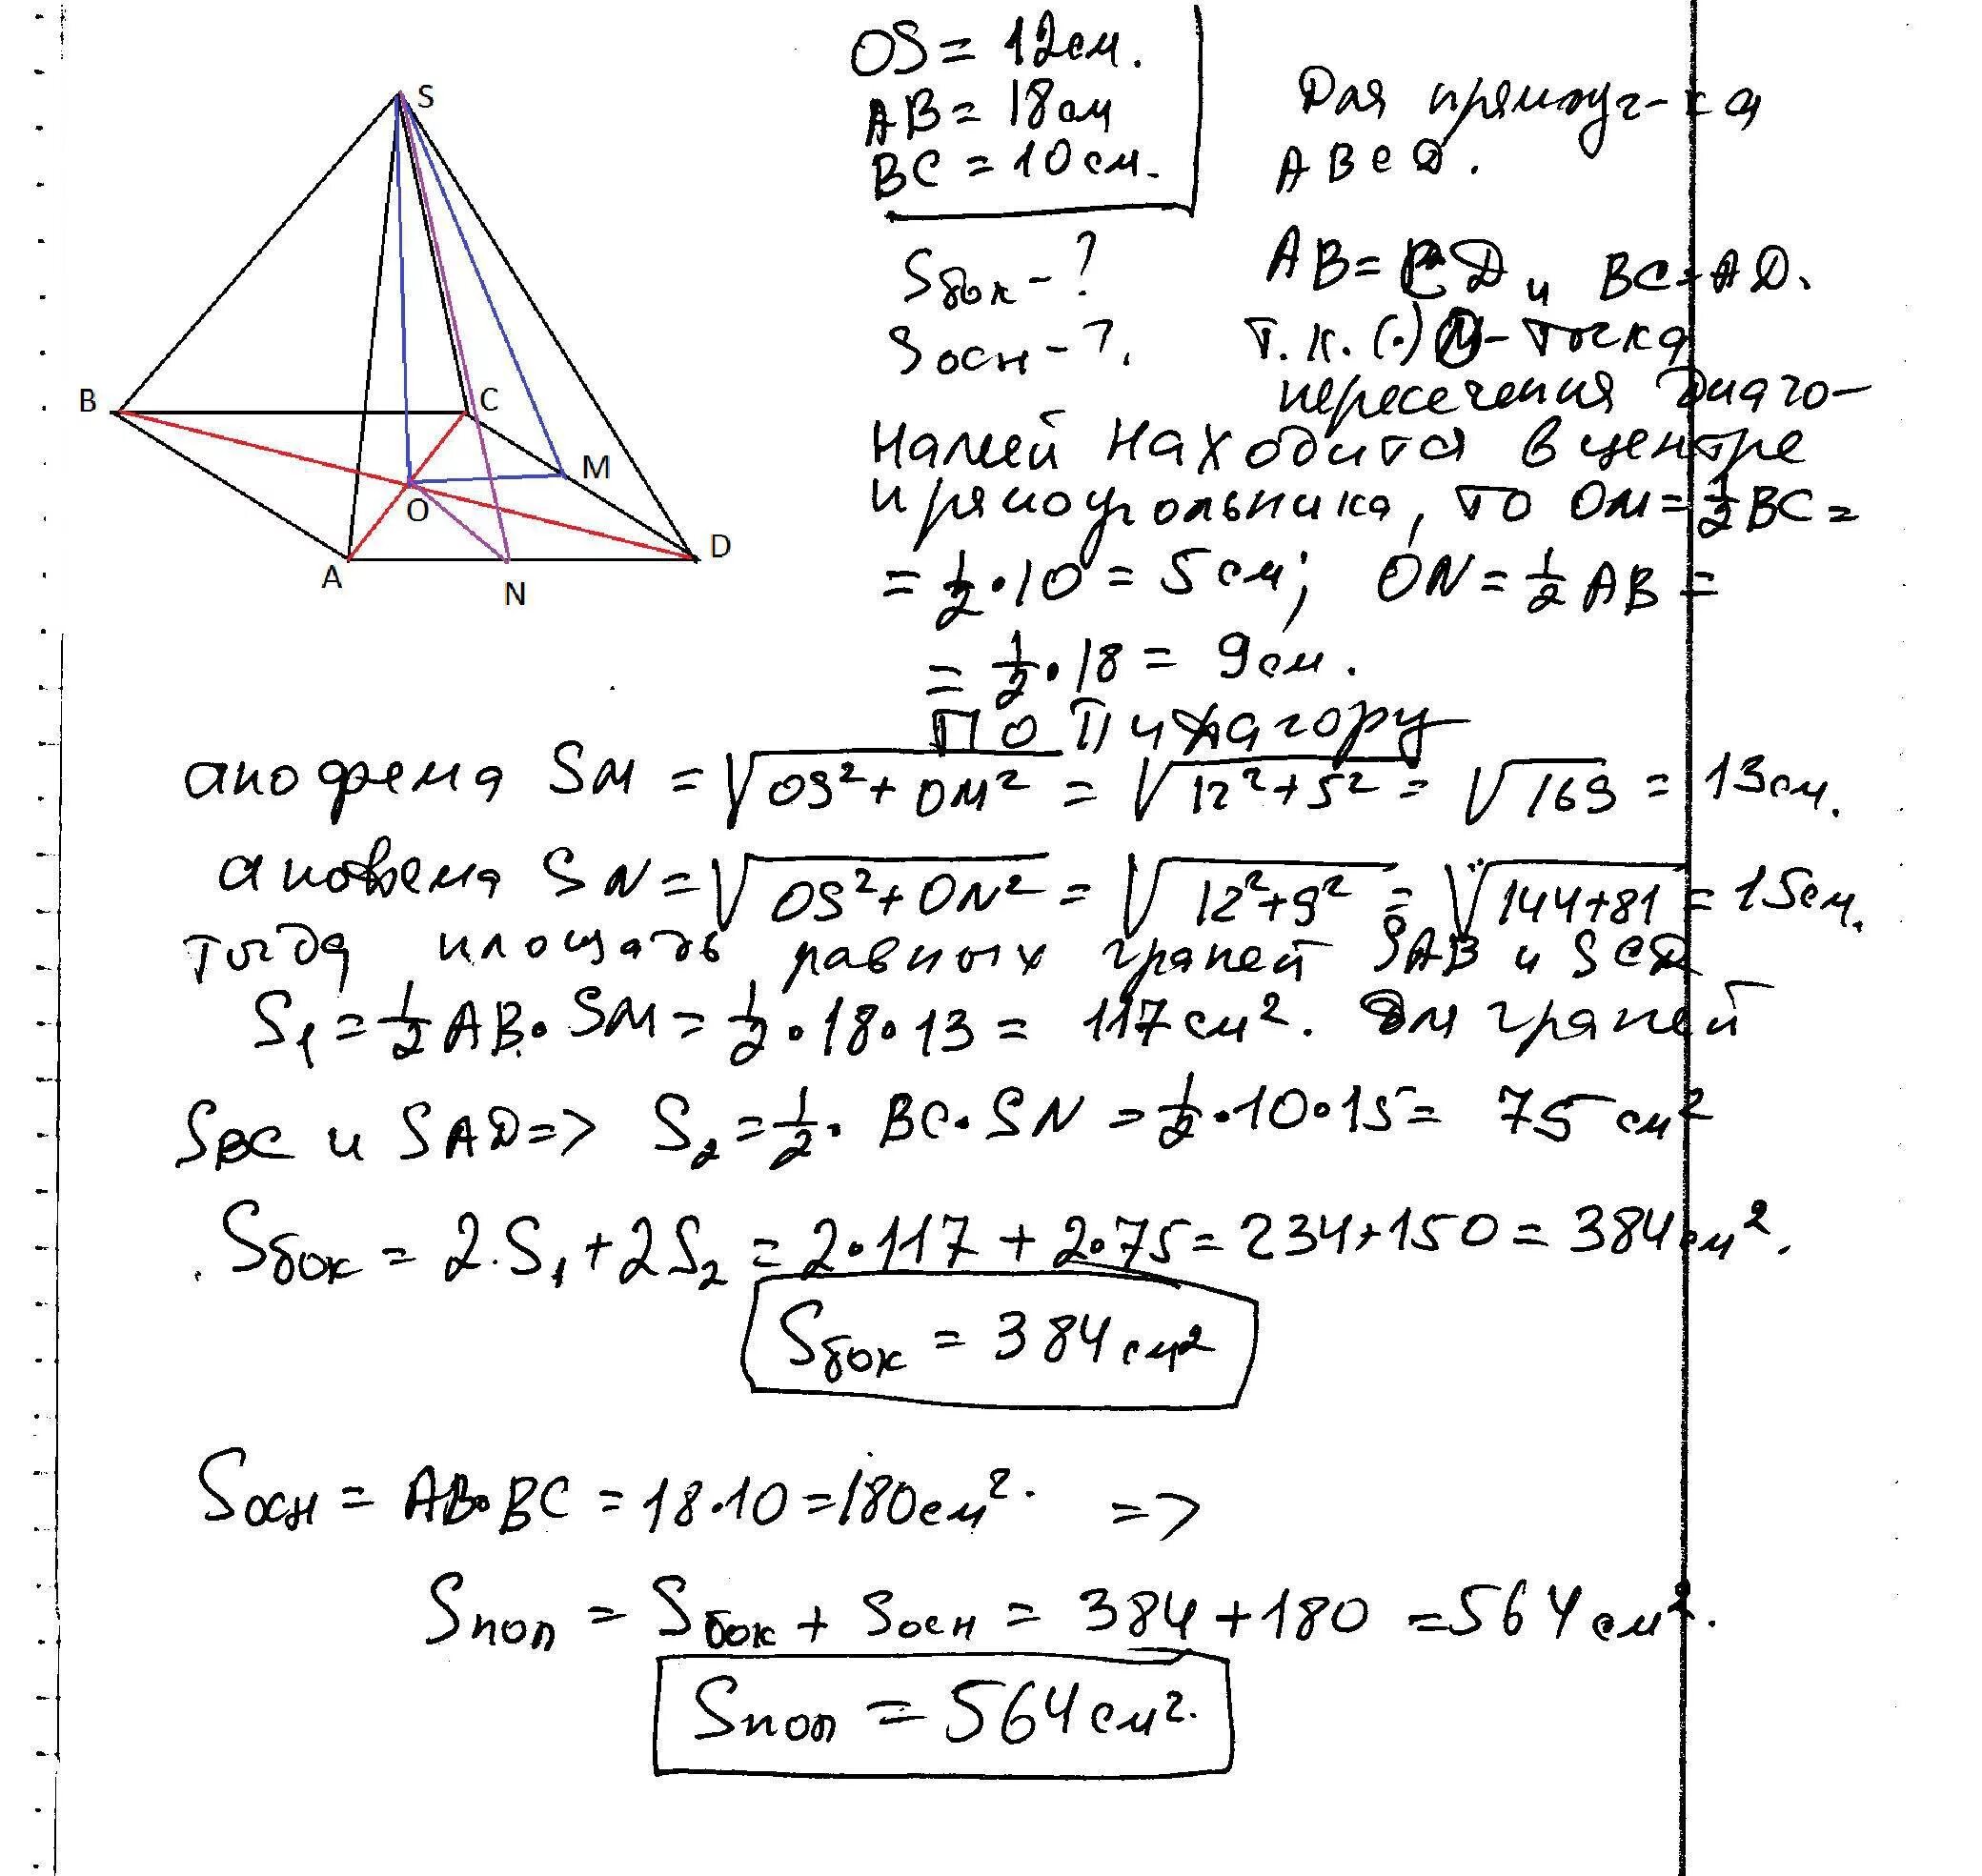 S
B
C
M
O
D
A
N
OS = 12см.
AB = 18см
BC = 10см.
Sбок - ?
Sосн - ?.
Для прямоуг-ка
ABCD.
AB = CD и BC = AD.
т.к. (·) O - точка
пересечения диаго-
налей находится в центре
прямоугольника, то OM = 1/2 BC =
= 1/2 · 10 = 5 см; ON = 1/2 AB =
= 1/2 · 18 = 9см.
По Пифагору
апофема SM = √(OS² + OM²) = √(12² + 5²) = √169 = 13см.
апофема SN = √(OS² + ON²) = √(12² + 9²) = √(144+81) = 15см.
тогда площадь равных граней SAB и SCD
S₁ = 1/2 AB · SM = 1/2 · 18 · 13 = 117 см². Для граней
SBC и SAD => S₂ = 1/2 · BC · SN = 1/2 · 10 · 15 = 75 см²
Sбок = 2·S₁ + 2S₂ = 2·117 + 2·75 = 234+150 = 384см².
Sбок = 384 см²
Sосн = AB·BC = 18·10 = 180см². =>
Sпол = Sбок + Sосн = 384 + 180 = 564 см².
Sпол = 564 см².